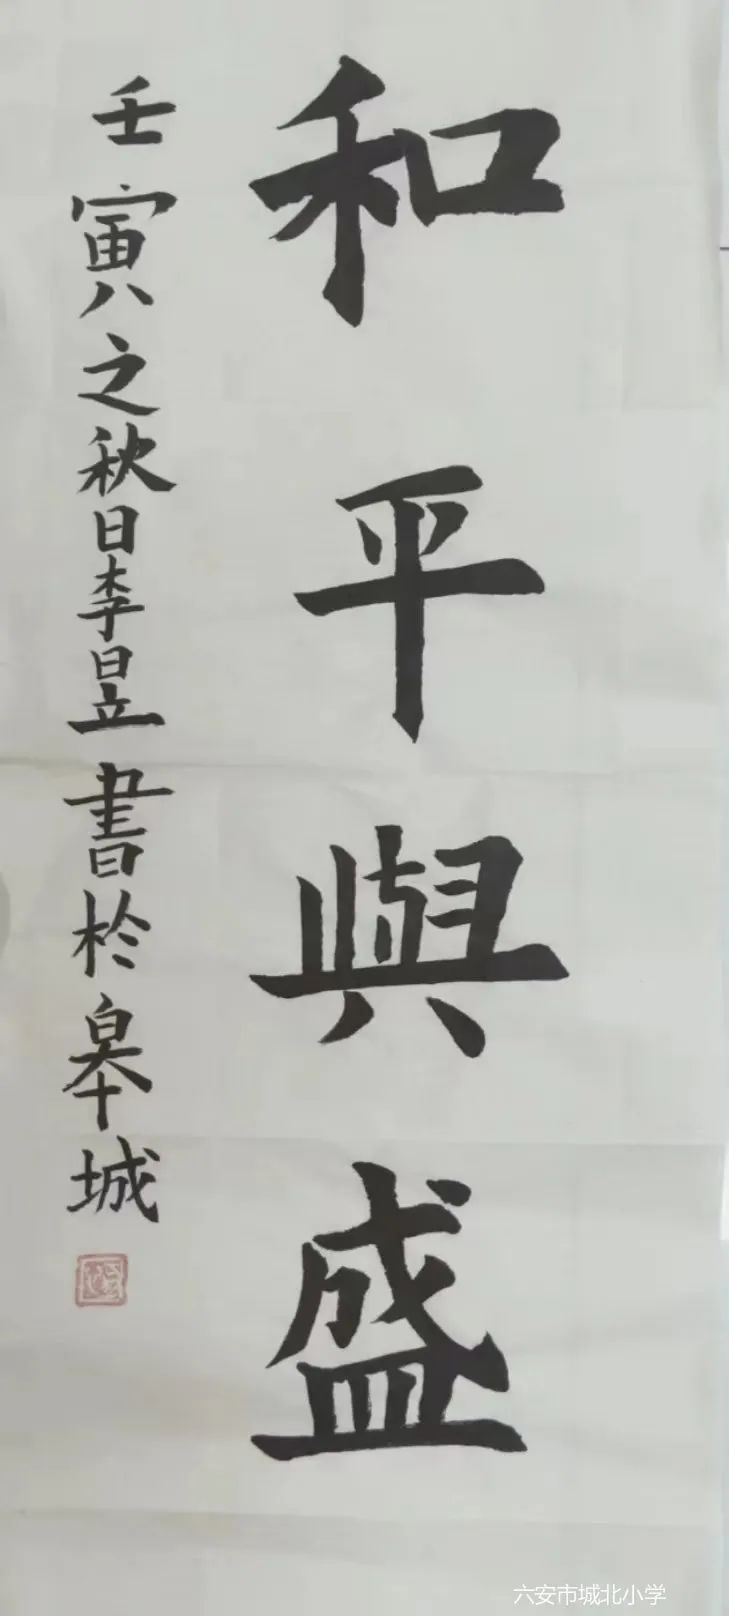 和平與盛
壬寅之秋日李昱書於皋城
六安市城北小学